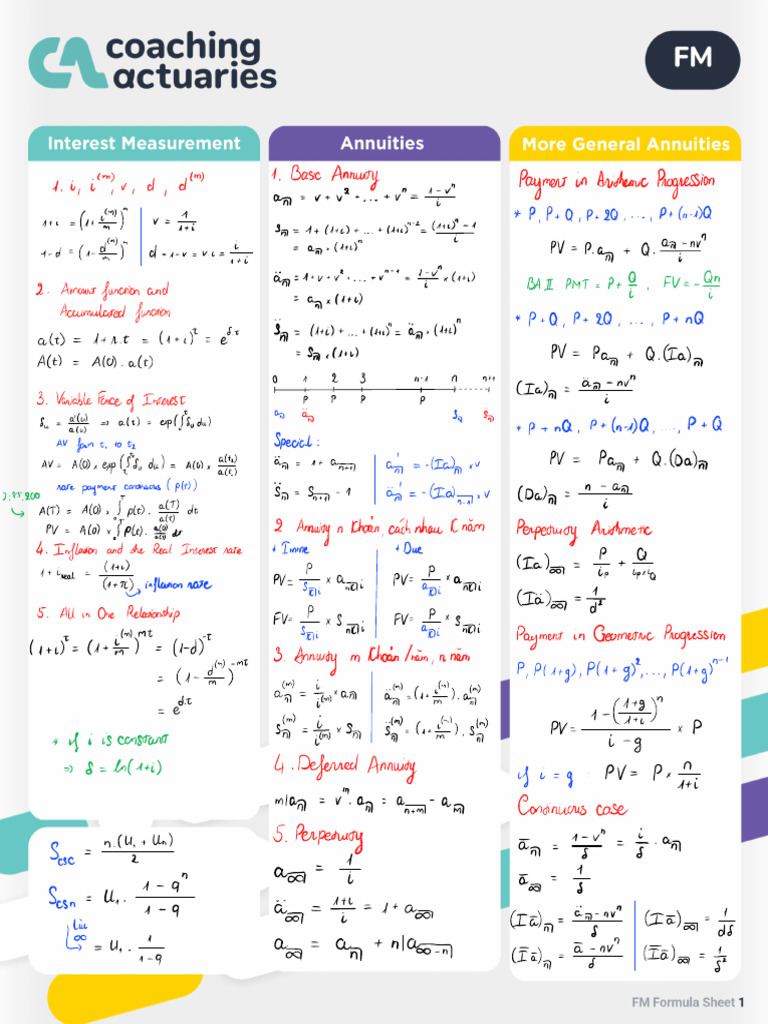 coaching
actuaries
FM
Interest Measurement
1. i, i^(m), v, d, d^(m)
1+i = (1 + i^(m)/m)^m | v = 1/(1+i)
1-d = (1 - d^(m)/m)^m | d = 1-v = v.i = i/(1+i)
2. Amount function and
Accumulated function
a(t) = 1+r.t = (1+i)^t = e^(δ.t)
A(t) = A(0).a(t)
3. Variable Force of Interest
δu = a'(u)/a(u) ⇒ a(t) = exp(∫δu du)
AV from t1 to t2
rate payment continuous (ρ(t))
4. Inflation and the Real Interest rate
1+i real = (1+i)/(1+π) → inflation rate
5. All in One Relationship
(1+i)^t = (1 + i^(m)/m)^mt = (1-d)^-t
= (1 - d^(m)/m)^-mt
= e^(δ.t)
+ if i is constant
⇒ δ = ln(1+i)
S csc = n.(U1+Un)/2
S csn = U1 . (1-q^n)/(1-q)
lùi ∞
= U1 . 1/(1-q)
Annuities
1. Basc Annuity
a n| = v + v^2 + ... + v^n = (1-v^n)/i
S n| = 1 + (1+i) + ... + (1+i)^n-1 = ((1+i)^n - 1)/i
= a n| × (1+i)^n
ä n| = 1 + v + v^2 + ... + v^n-1 = (1-v^n)/i × (1+i)
= a n| × (1+i)
S̈ n| = (1+i) + ... + (1+i)^n = ä n| × (1+i)^n
= S n| × (1+i)
0 1 2 3 n-1 n n+1
P P P P
a n| ä n| S n| S̈ n|
Special:
2 Annuity n Khoản, cách nhau K năm
+ Imme + Due
PV = P/(S K|i) × a nK|i PV = P/(a K|i) × a nK|i
FV = P/(S K|i) × S nK|i FV = P/(a K|i) × S nK|i
3. Annuity m Khoản/năm, n năm
a^(m) n| = i/i^(m) × a n| ä^(m) n| = (1 + i^(m)/m) . a^(m) n|
S^(m) n| = i/i^(m) × S n| S̈^(m) n| = (1 + i^(m)/m) . S^(m) n|
4. Deferred Annuity
m|a n| = v^m . a n| = a n+m| - a m|
5. Perpetuity
a ∞| = 1/i
ä ∞| = (1+i)/i = 1 + a ∞|
a ∞| = a n| + n|a ∞-n|
More General Annuities
Payment in Arithmeric Progression
* P, P+Q, P+2Q, ..., P+(n-1)Q
PV = P.a n| + Q . (a n| - nv^n)/i
BA II PMT = P + Q/i , FV = -Qn/i
* P+Q, P+2Q, ..., P+nQ
PV = P a n| + Q.(Ia) n|
(Ia) n| = (ä n| - nv^n)/i
* P+nQ, P+(n-1)Q, ..., P+Q
PV = P a n| + Q.(Da) n|
(Da) n| = (n - a n|)/i
Perpetuity Arithmetic
(Iä) ∞| = 1/d^2
Payment in Geometric Progression
P, P(1+g), P(1+g)^2, ..., P(1+g)^n-1
PV = (1 - ((1+g)/(1+i))^n)/(i-g) × P
if i = g PV = P × n/(1+i)
Continuous case
ā n| = (1-v^n)/δ = i/δ . a n|
ā ∞| = 1/δ
(Iā) n| = (ä n| - nv^n)/δ | (Iā) ∞| = 1/(dδ)
(Īā) n| = (ā - nv^n)/δ | (Īā) ∞| = 1/δ^2
FM Formula Sheet 1